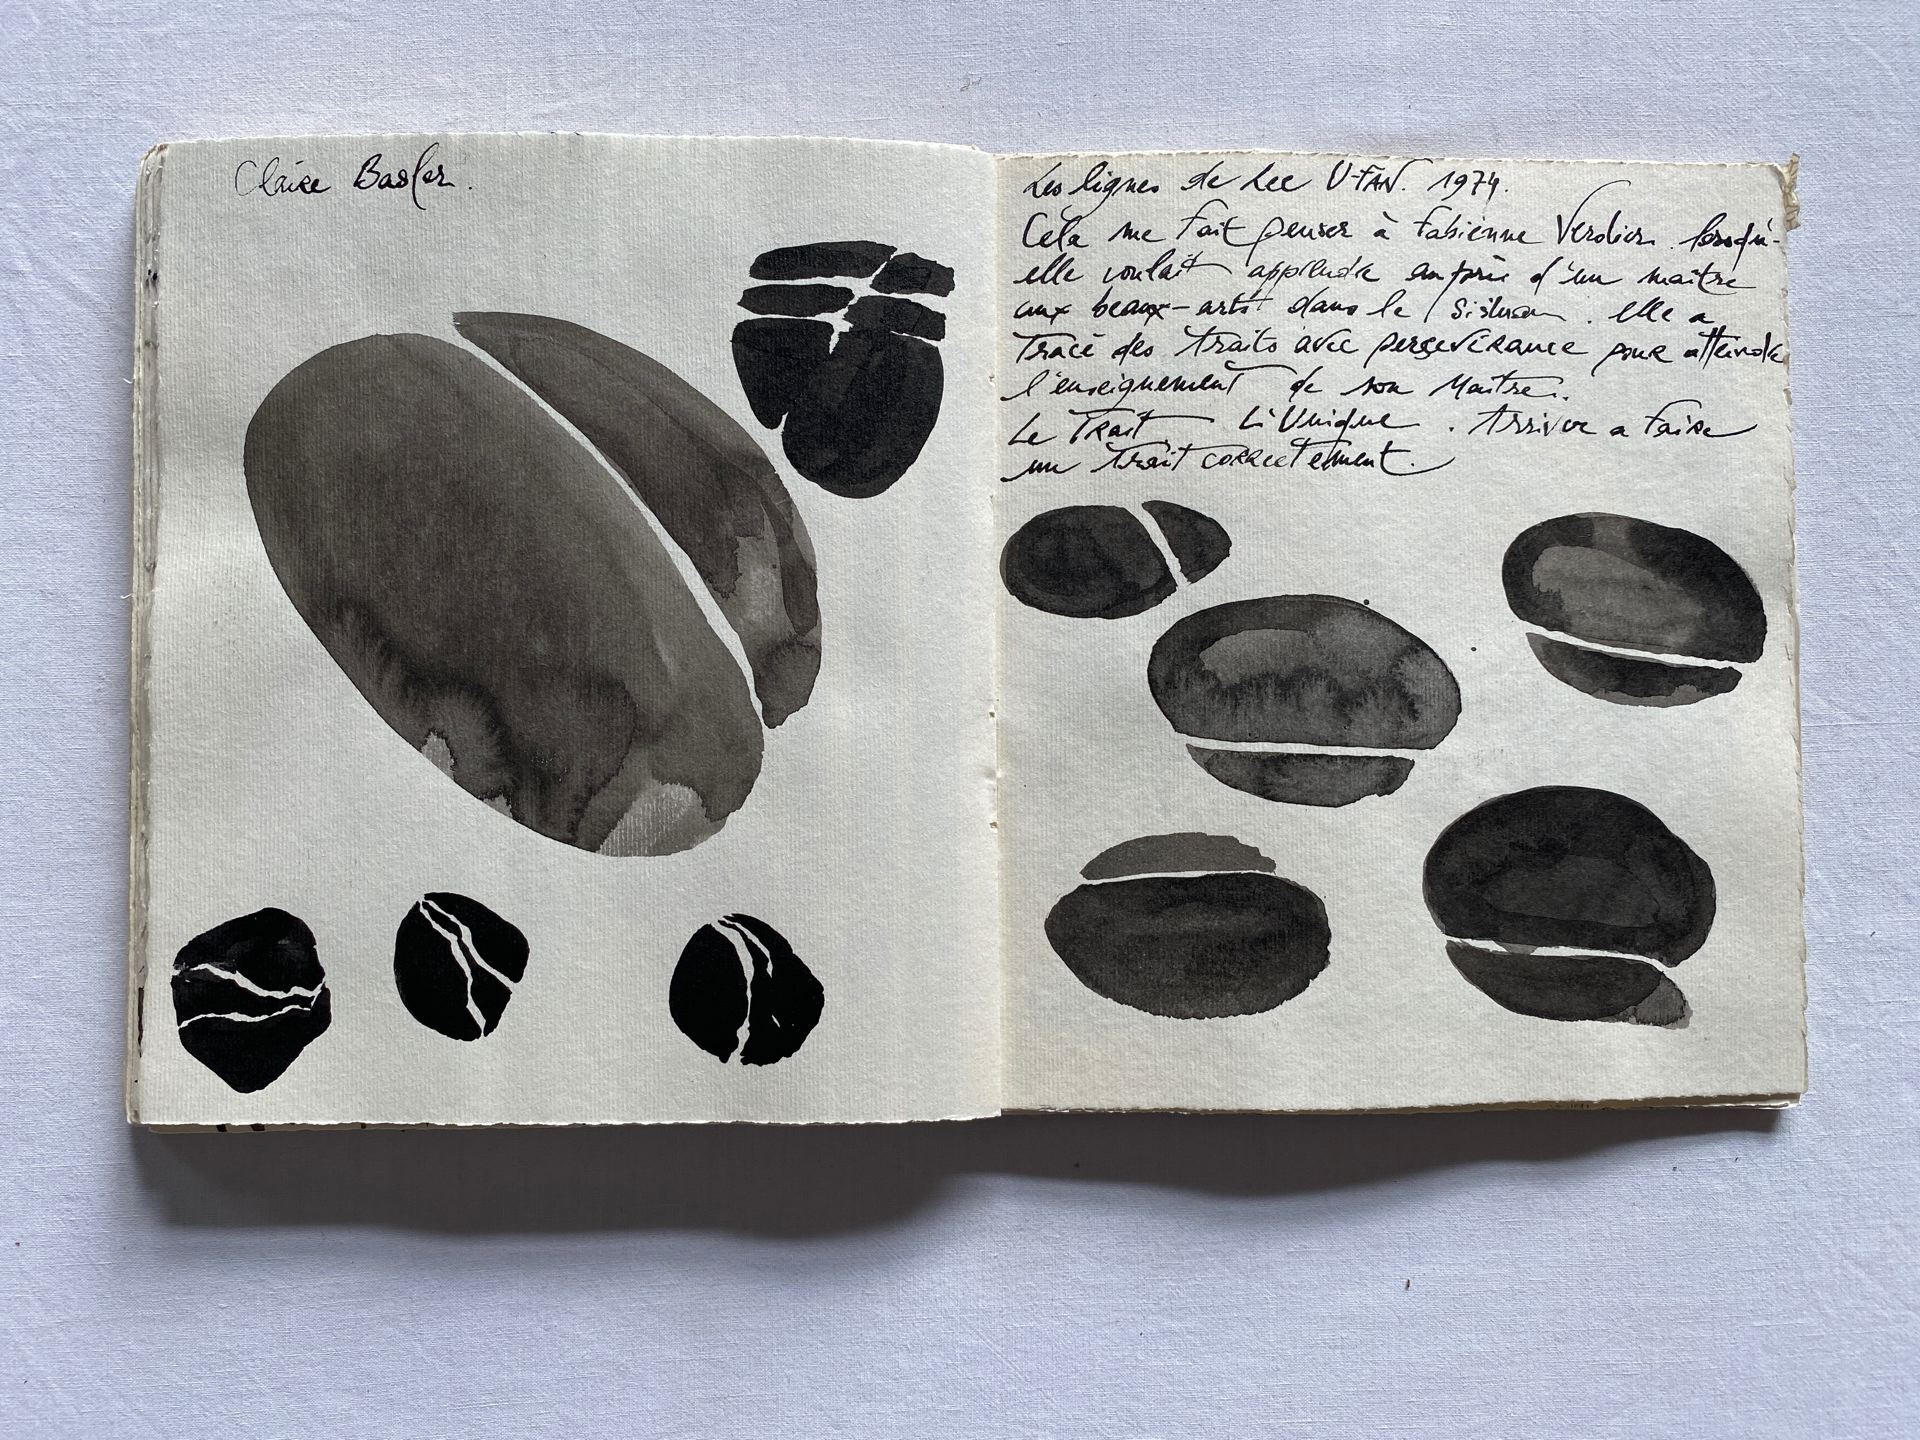 Claire Basler.
Les lignes de Lee U-FAN. 1974.
Cela me fait penser à Fabienne Verdier. lorsqu'-
elle voulait apprendre auprès d'un maître
aux beaux-arts dans le Sishuan. elle a
Tracé des Traits avec persévérance pour atteindre
l'enseignement de son Maître.
Le Trait L'Unique. Arriver a faire
un Trait correctement.